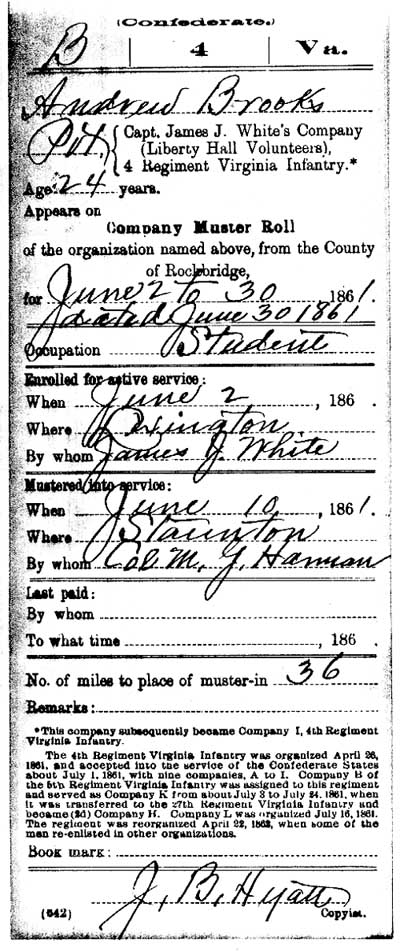 (Confederate.)
B | 4 | Va.
Andrew Brooks
Pvt., { Capt. James J. White's Company
(Liberty Hall Volunteers),
4 Regiment Virginia Infantry.*
Age 24 years.
Appears on
Company Muster Roll
of the organization named above, from the County
of Rockbridge,
for June 2 to 30, 1861.
dated June 30 1861
Occupation Student
Enrolled for active service:
When June 2, 186 .
Where Lexington
By whom James J. White
Mustered into service:
When June 10, 1861.
Where Staunton
By whom Col. M. G. Harman
Last paid:
By whom
To what time , 186 .
No. of miles to place of muster-in 36
Remarks:
*This company subsequently became Company I, 4th Regiment
Virginia Infantry.
The 4th Regiment Virginia Infantry was organized April 26,
1861, and accepted into the service of the Confederate States
about July 1, 1861, with nine companies, A to I. Company B of
the 5th Regiment Virginia Infantry was assigned to this regiment
and served as Company K from about July 3 to July 24, 1861, when
it was transferred to the 27th Regiment Virginia Infantry and
became (2d) Company H. Company L was organized July 16, 1861.
The regiment was reorganized April 22, 1862, when some of the
men re-enlisted in other organizations.
Book mark:
J. B. Hyatt
(642) Copyist.